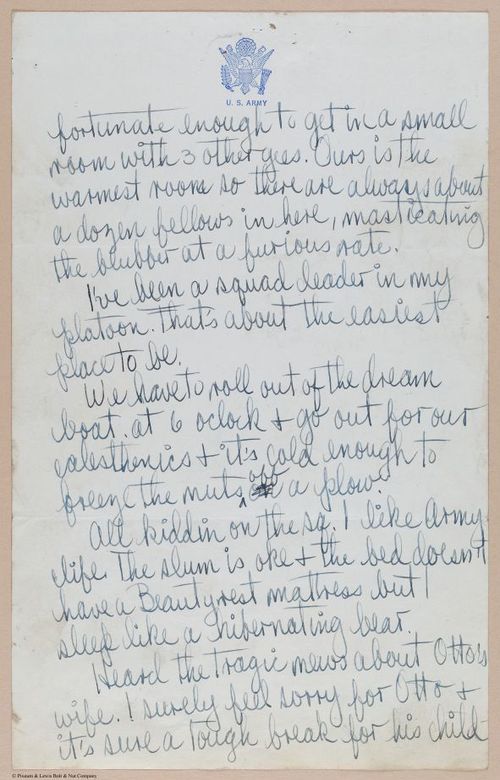 U. S. ARMY
fortunate enough to get in a small
room with 3 other gees. Ours is the
warmest room so there are always about
a dozen fellows in here, masticating
the blubber at a furious rate.
I've been a squad leader in my
platoon. That's about the easiest
place to be.
We have to roll out of the dream
boat. at 6 oclock + go out for our
calesthenics + it's cold enough to
freeze the nuts off a plow.
All kiddin on the sq. I like Army
life. The slum is oke + the bed doesn't
have a Beautyrest mattress but I
sleep like a hibernating bear.
Heard the tragic news about Otto's
wife. I surely feel sorry for Otto +
it's sure a tough break for his child
© Profiles & Lewis Bolt & Nut Company